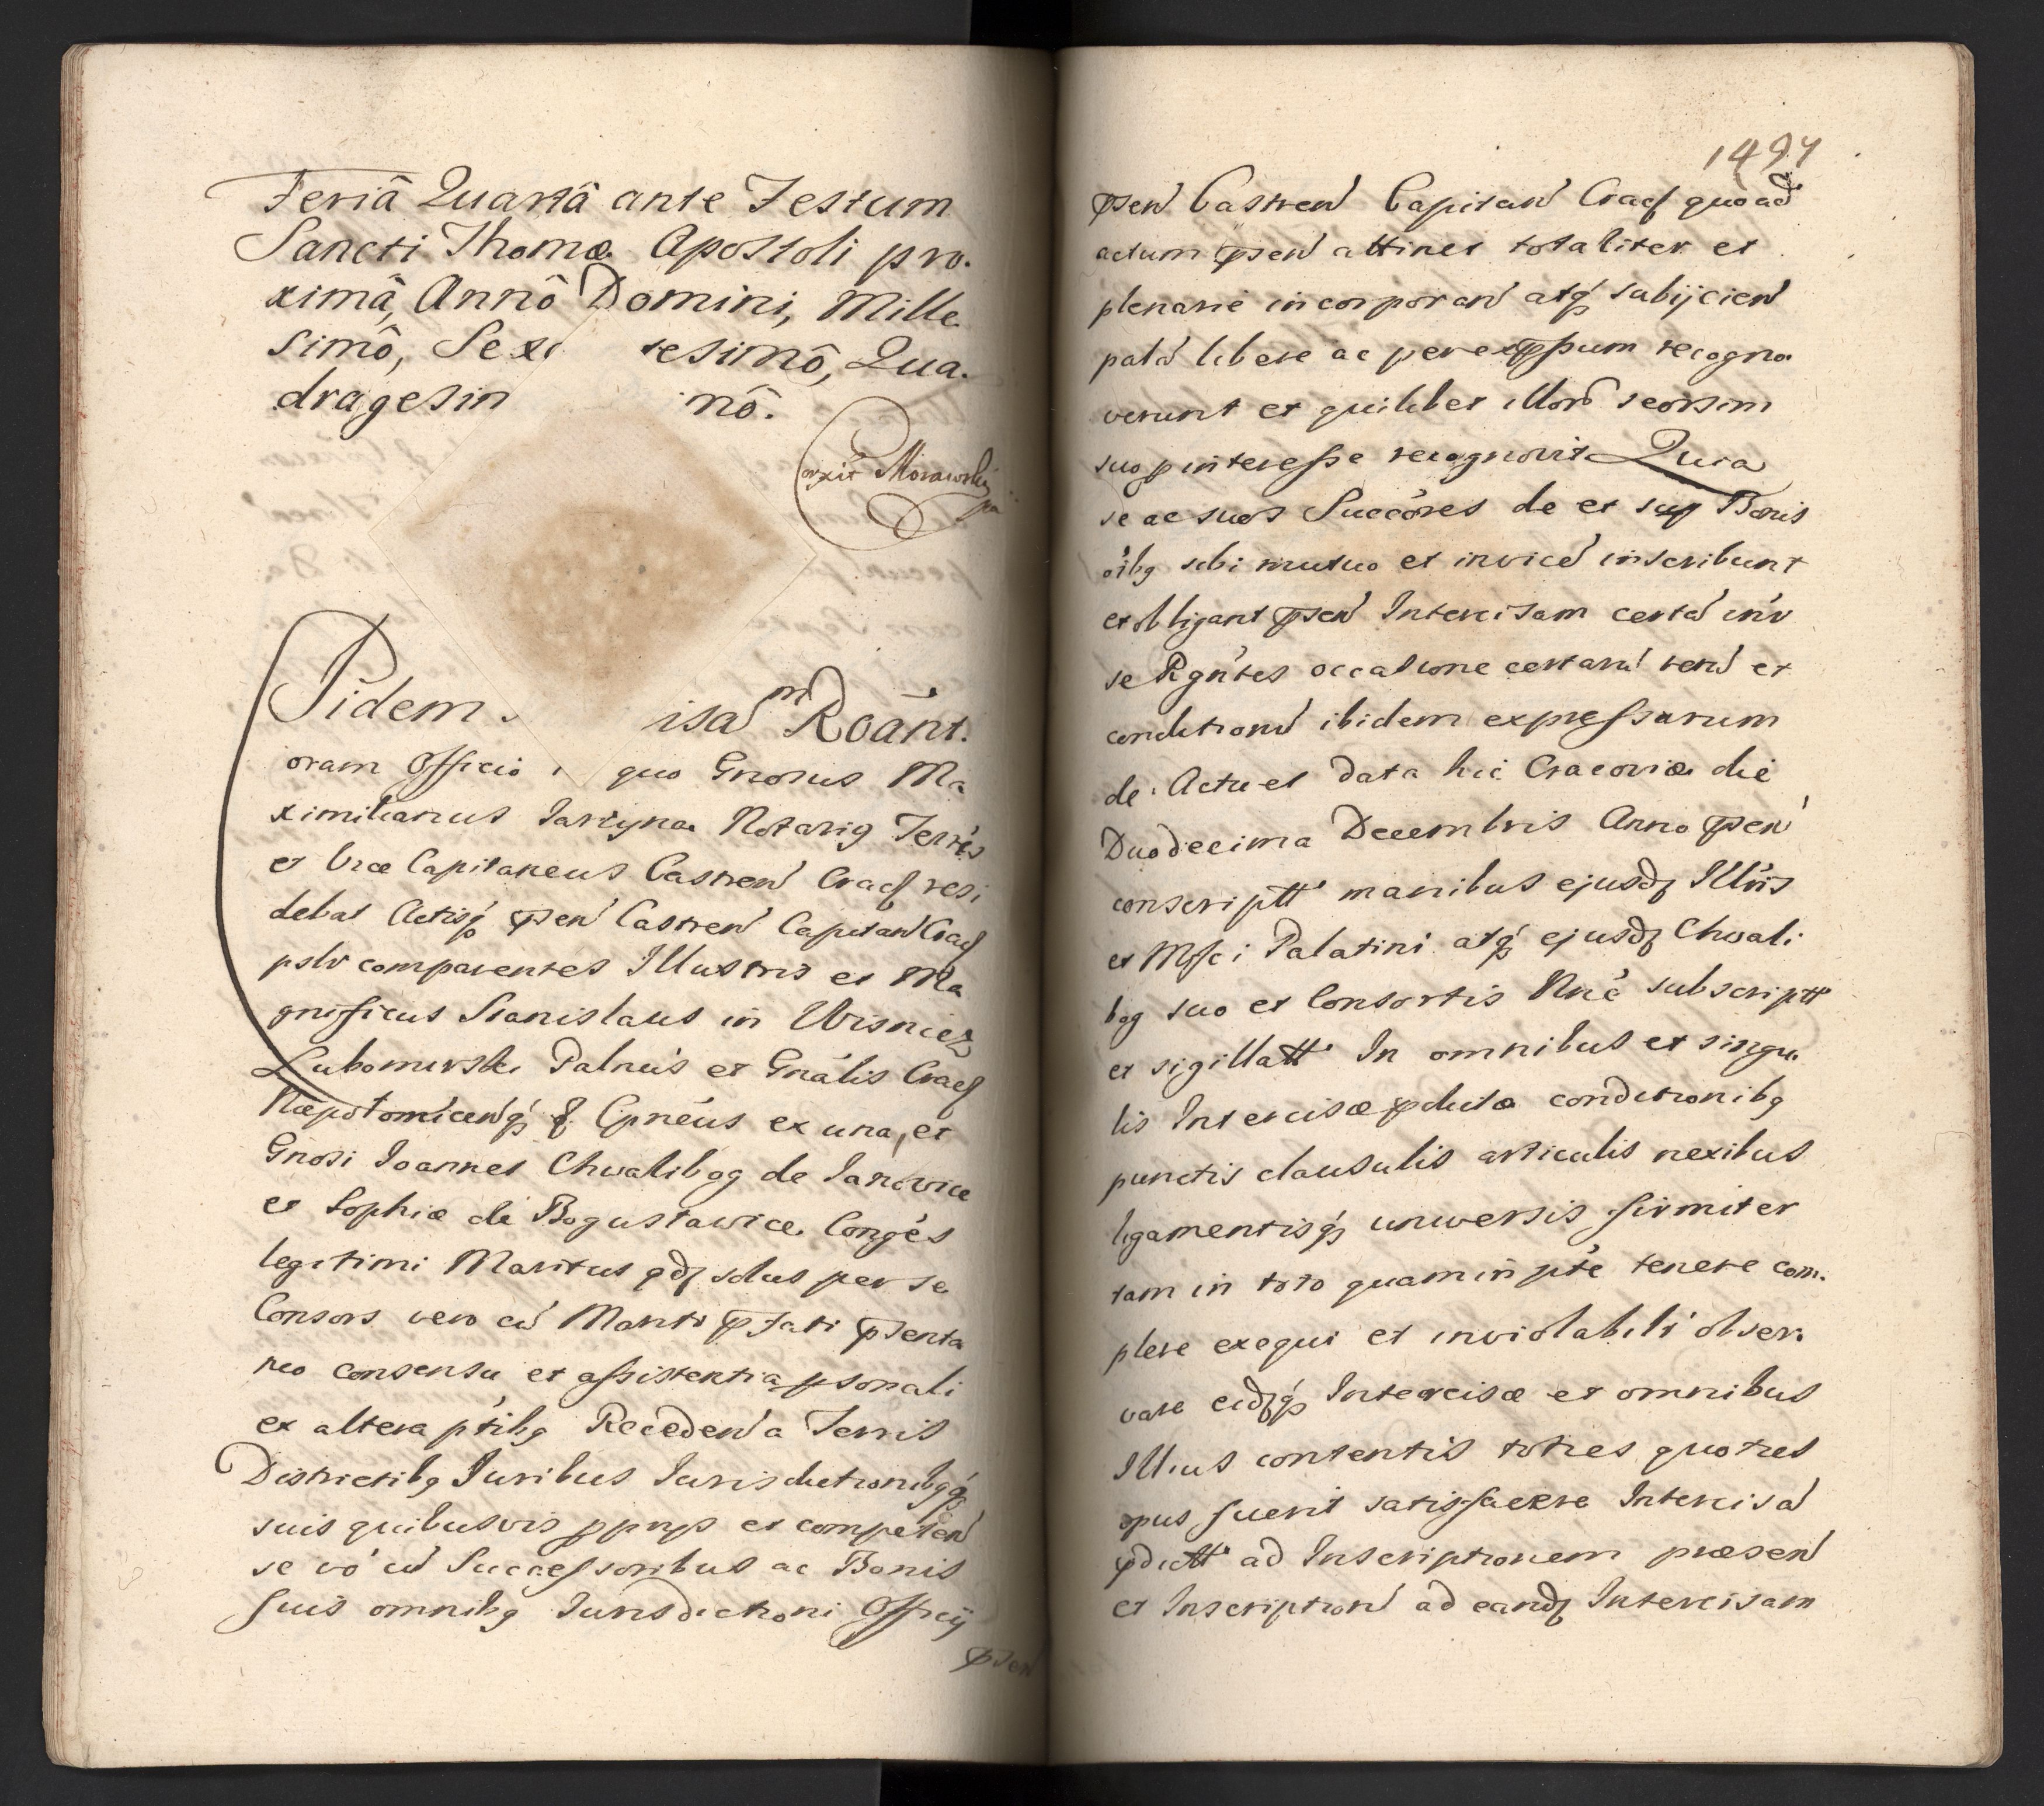 Feriâ Quartâ ante Festum
Sancti Thomæ Apostoli pro.
ximâ, Annô Domini, Mille
simô, Sexc tesimô, Qua.
dragesim nô.
Corxit Morawski
Pidem isam Roãnt.
oram Officio quo Gnosus Ma
ximilianus Jarzyna Notarig Terrēs
et Vice Capitaneus Castren Cracę resi
debat Actisq psen Castren Capitan Cracę
pslr comparentes Illustris et Ma
gnificus Stanislaus in Wisnicz
Lubomirski Palnûs et Gnãlis Cracę
Næpotomicenq & Cpnëus ex una, et
Gnosi Joannes Chwalibog de Janowice
et Sophia de Bogusławice Congēs
legitimi Maritus qdę solus per se
Consors vero cū Mariti pfati psenta
neo consensu et assistentia psonali
ex altera ptibg Recedend a Terris
Districtibg Juribus Jurisdictionibgq
suis quibusvis pprijs et competen
se vō cū Successoribus ac Bonis
suis omnibg Jurisdictioni Officij
psen
1497
psen Castren Capitan Cracę quoad
actum psen attinet totaliter et
plenarie incorporan atq subijcien
palã libere ac per expssum recogno
verunt et quilibet illorũ seorsim
suo pinteresse recognovit Quia
se ac suos Succōres de et sup Bonis
oĩbg sibi mutuo et invicē inscribunt
et obligant psen Intercisam certã inr
se Rgñtes occasione certarũ rerũ et
conditionũ ibidem expressarum
de Actu et data hic Cracoviæ die
Duodecima Decembris Anno psen
conscriptt manibus ejusdę Illris
et Mfci Palatini atq ejusdę Chwali
bog suo et Consortis Nnē subscriptt
et sigillatt In omnibus et singu
lis Intercisæ pdictæ conditionibg
punctis clausulis articulis nexibus
ligamentisq universis firmiter
tam in toto quam in pte tenere com.
plere exequi et inviolabili obser.
vare eidęq Intercisæ et omnibus
Illius contentis toties quoties
opus fuerit satisfacere Intercisã
pdictt ad Inscriptionem præsen
et Inscriptionũ ad eandę Intercisam